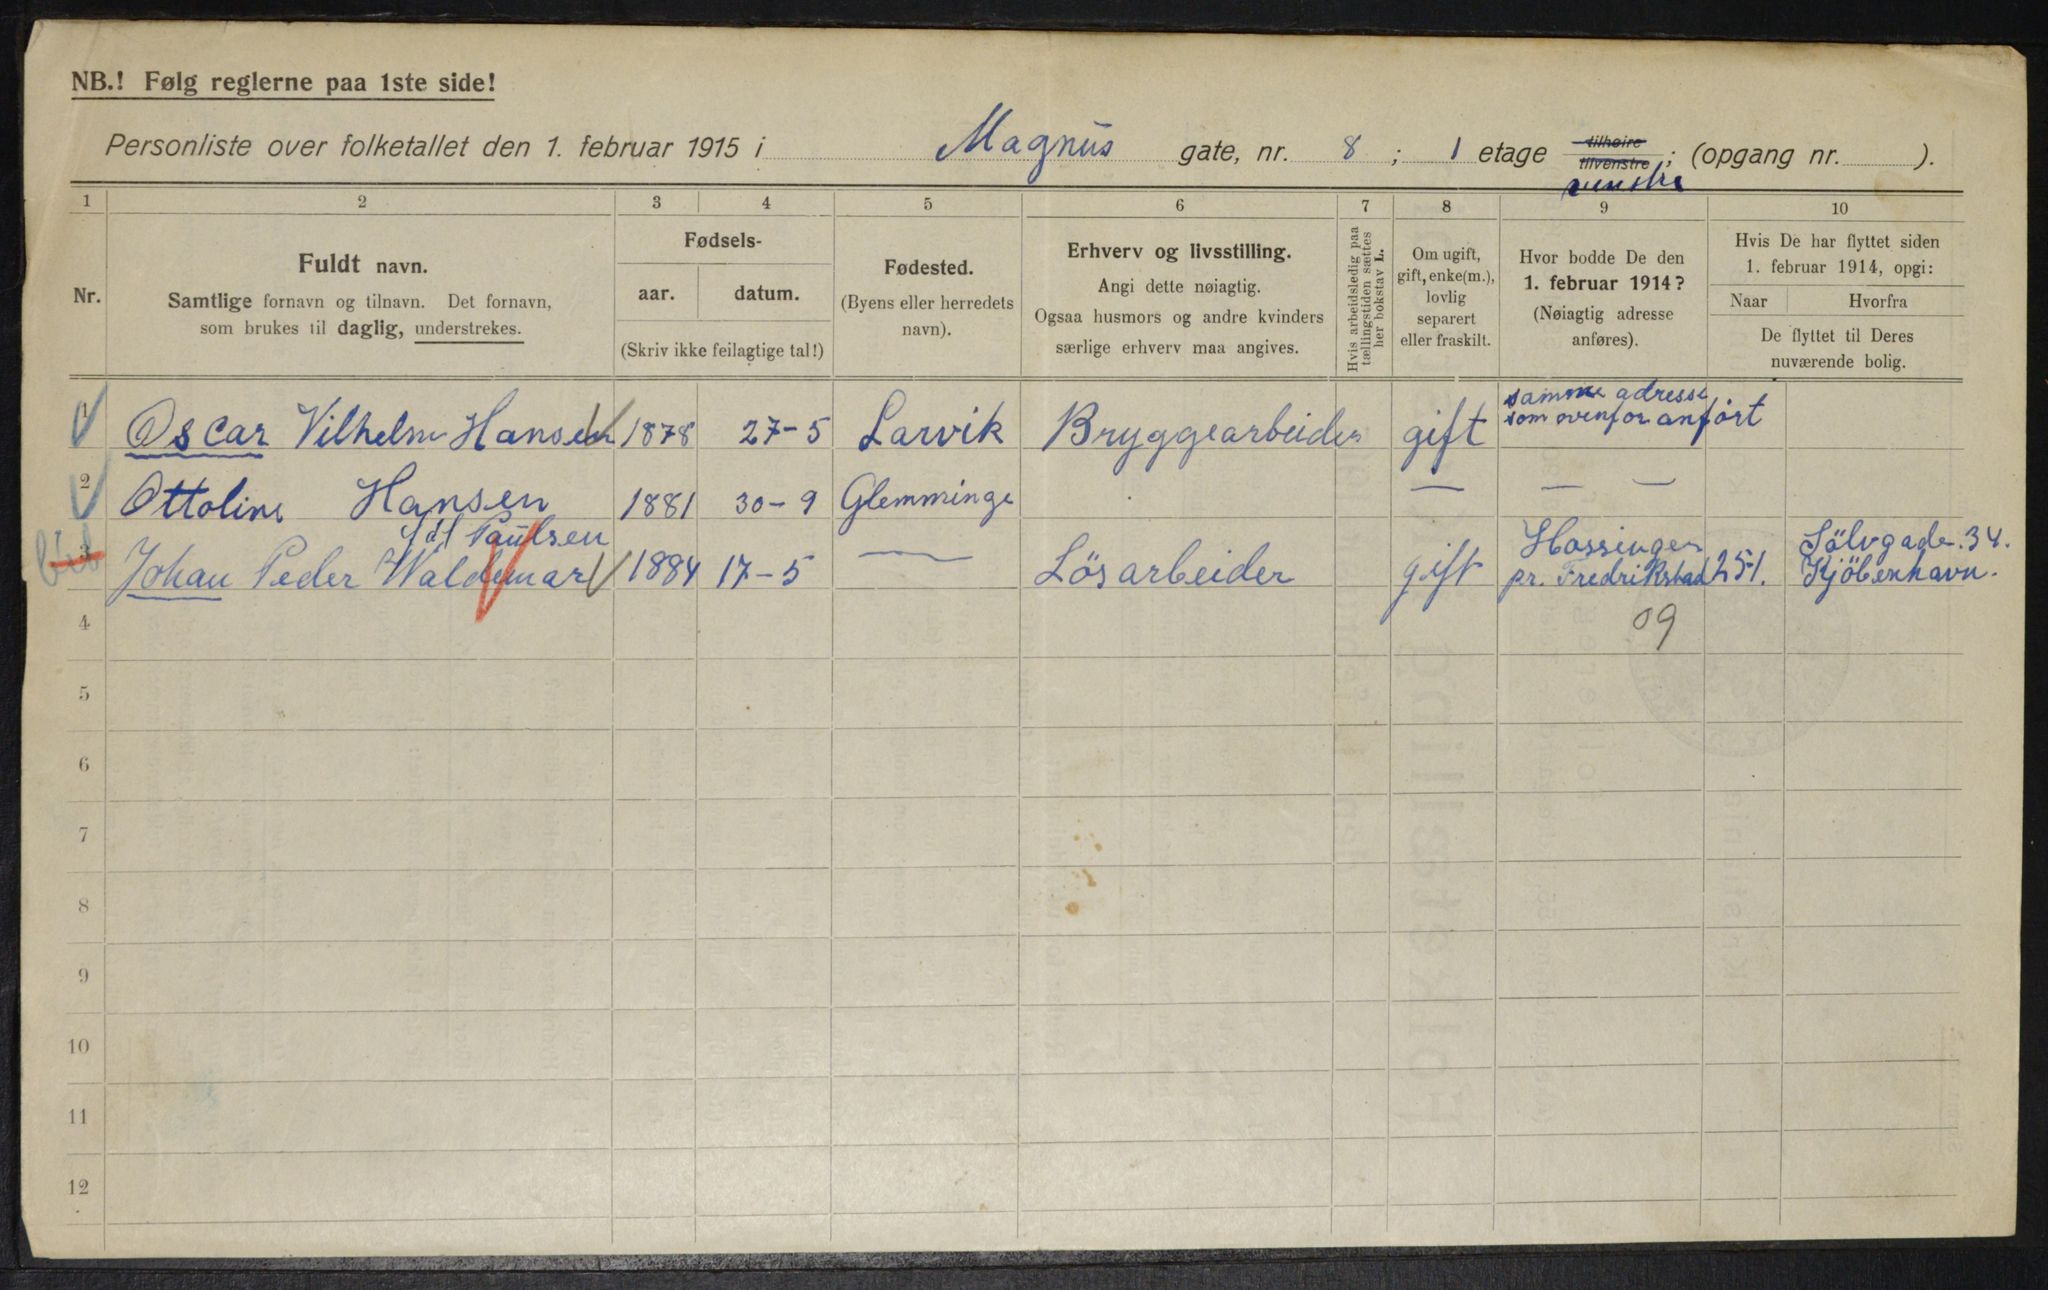 NB.! Følg reglerne paa 1ste side!
Personliste over folketallet den 1. februar 1915 i Magnus gate, nr. 8 ; 1 etage tilhøire tilvenstre venstre ; (opgang nr. ).
1 2 3 4 5 6 7 8 9 10
Nr.
Fuldt navn.
Samtlige fornavn og tilnavn. Det fornavn,
som brukes til daglig, understrekes.
Fødsels-
aar. datum.
(Skriv ikke feilagtige tal!)
Fødested.
(Byens eller herredets
navn).
Erhverv og livsstilling.
Angi dette nøiagtig.
Ogsaa husmors og andre kvinders
særlige erhverv maa angives.
Hvis arbeidsledig paa
tællingstiden sættes
her bokstav L.
Om ugift,
gift, enke(m.),
lovlig
separert
eller fraskilt.
Hvor bodde De den
1. februar 1914?
(Nøiagtig adresse
anføres).
Hvis De har flyttet siden
1. februar 1914, opgi:
Naar Hvorfra
De flyttet til Deres
nuværende bolig.
1 Oscar Vilhelm Hansen 1878 27-5 Larvik Bryggearbeider gift samme adresse
som ovenfor anført
2 Ottoline Hansen 1881 30-9 Glemminge — — —
Paulsen
3 Johan Peder Waldemar 1884 17-5 — Lösarbeider gift
pr. Fredrikstad 251. Sölvgade. 34.
Kjöbenhavn.
4 09
5
6
7
8
9
10
11
12